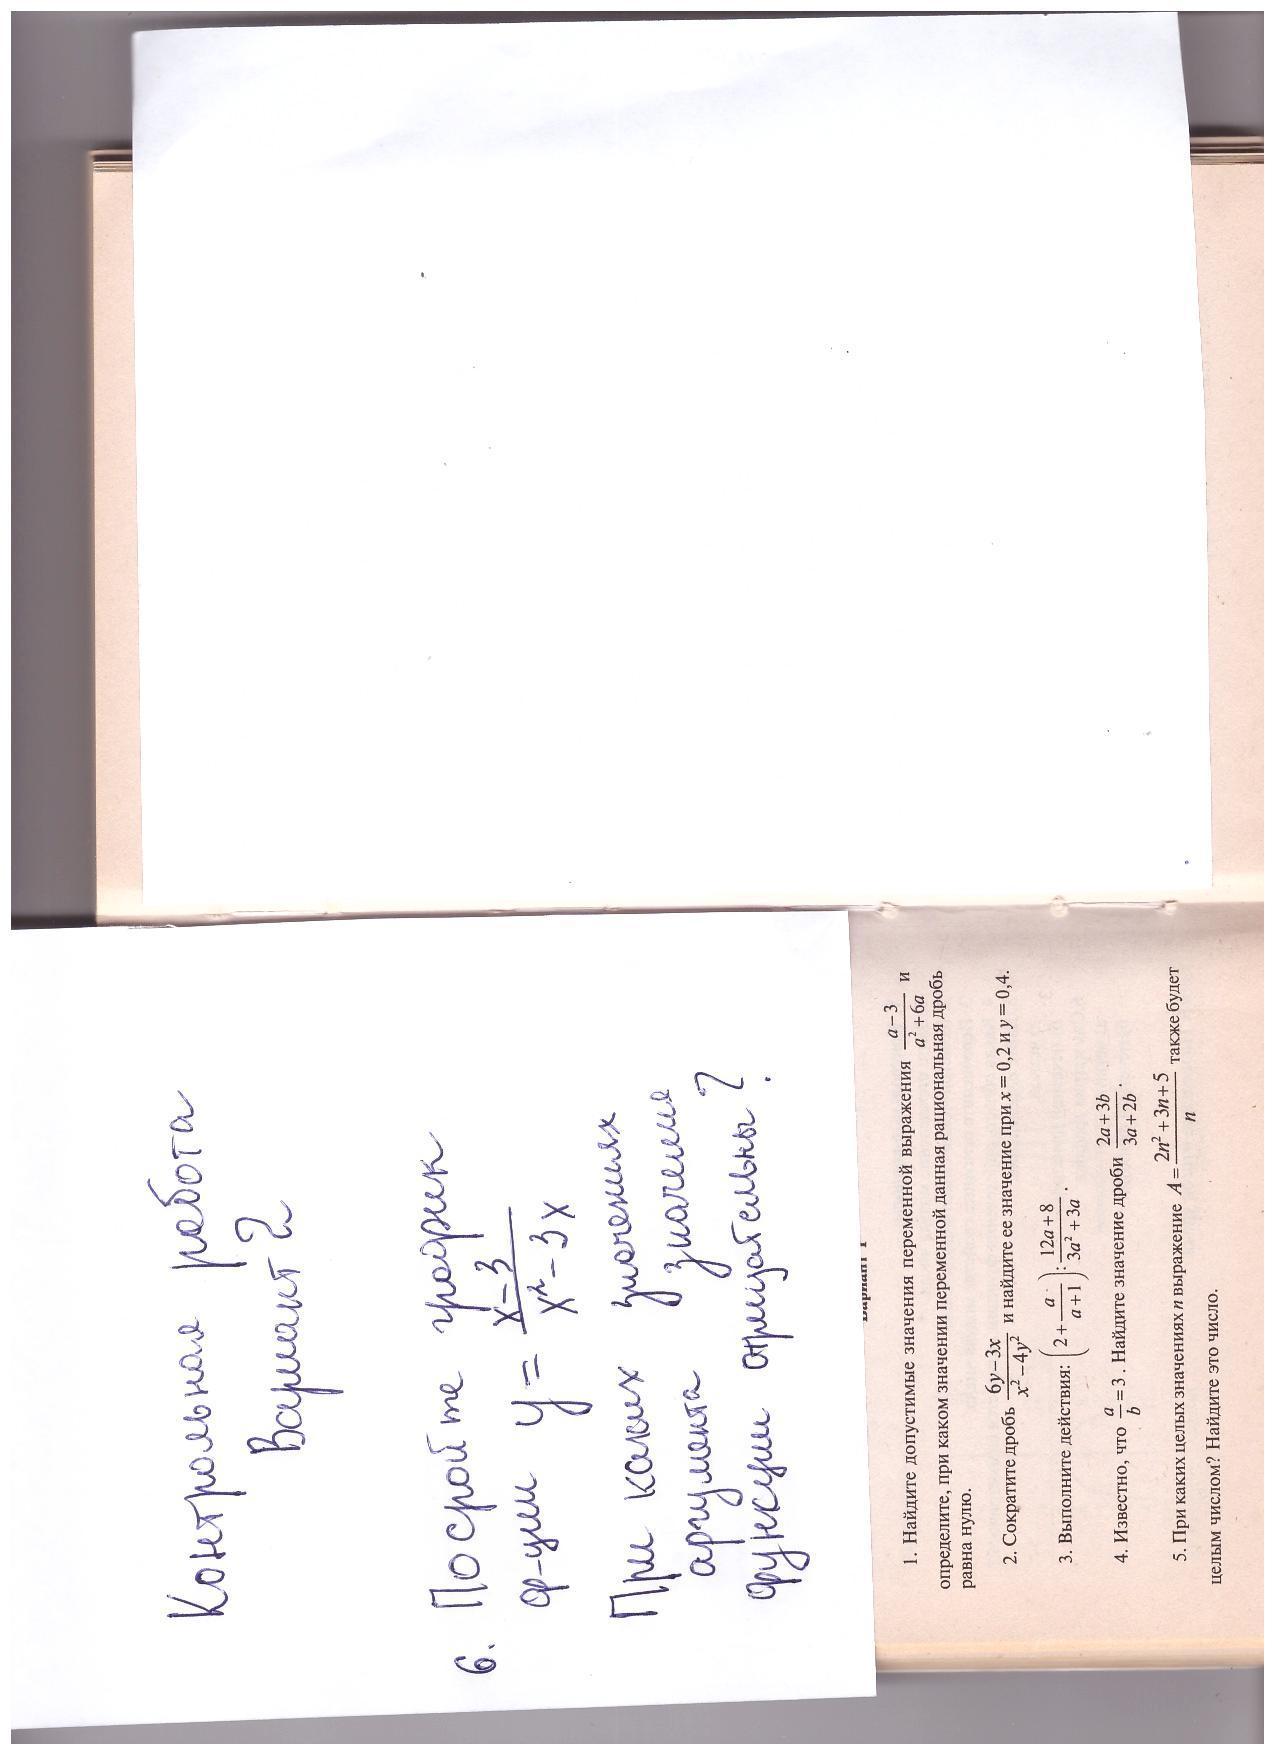 Контрольная работа
Вариант 2
6. Посройте график
ф-ции y = \frac{x-3}{x^2-3x}
При каких значениях
аргумента значения
функции отрицательны?
1. Найдите допустимые значения переменной выражения \frac{a-3}{a^2+6a} и
определите, при каком значении переменной данная рациональная дробь
равна нулю.
2. Сократите дробь \frac{6y-3x}{x^2-4y^2} и найдите ее значение при x = 0,2 и y = 0,4.
3. Выполните действия: \left(2+\frac{a}{a+1}\right):\frac{12a+8}{3a^2+3a}.
4. Известно, что \frac{a}{b}=3. Найдите значение дроби \frac{2a+3b}{3a+2b}.
5. При каких целых значениях n выражение A=\frac{2n^2+3n+5}{n} также будет
целым числом? Найдите это число.